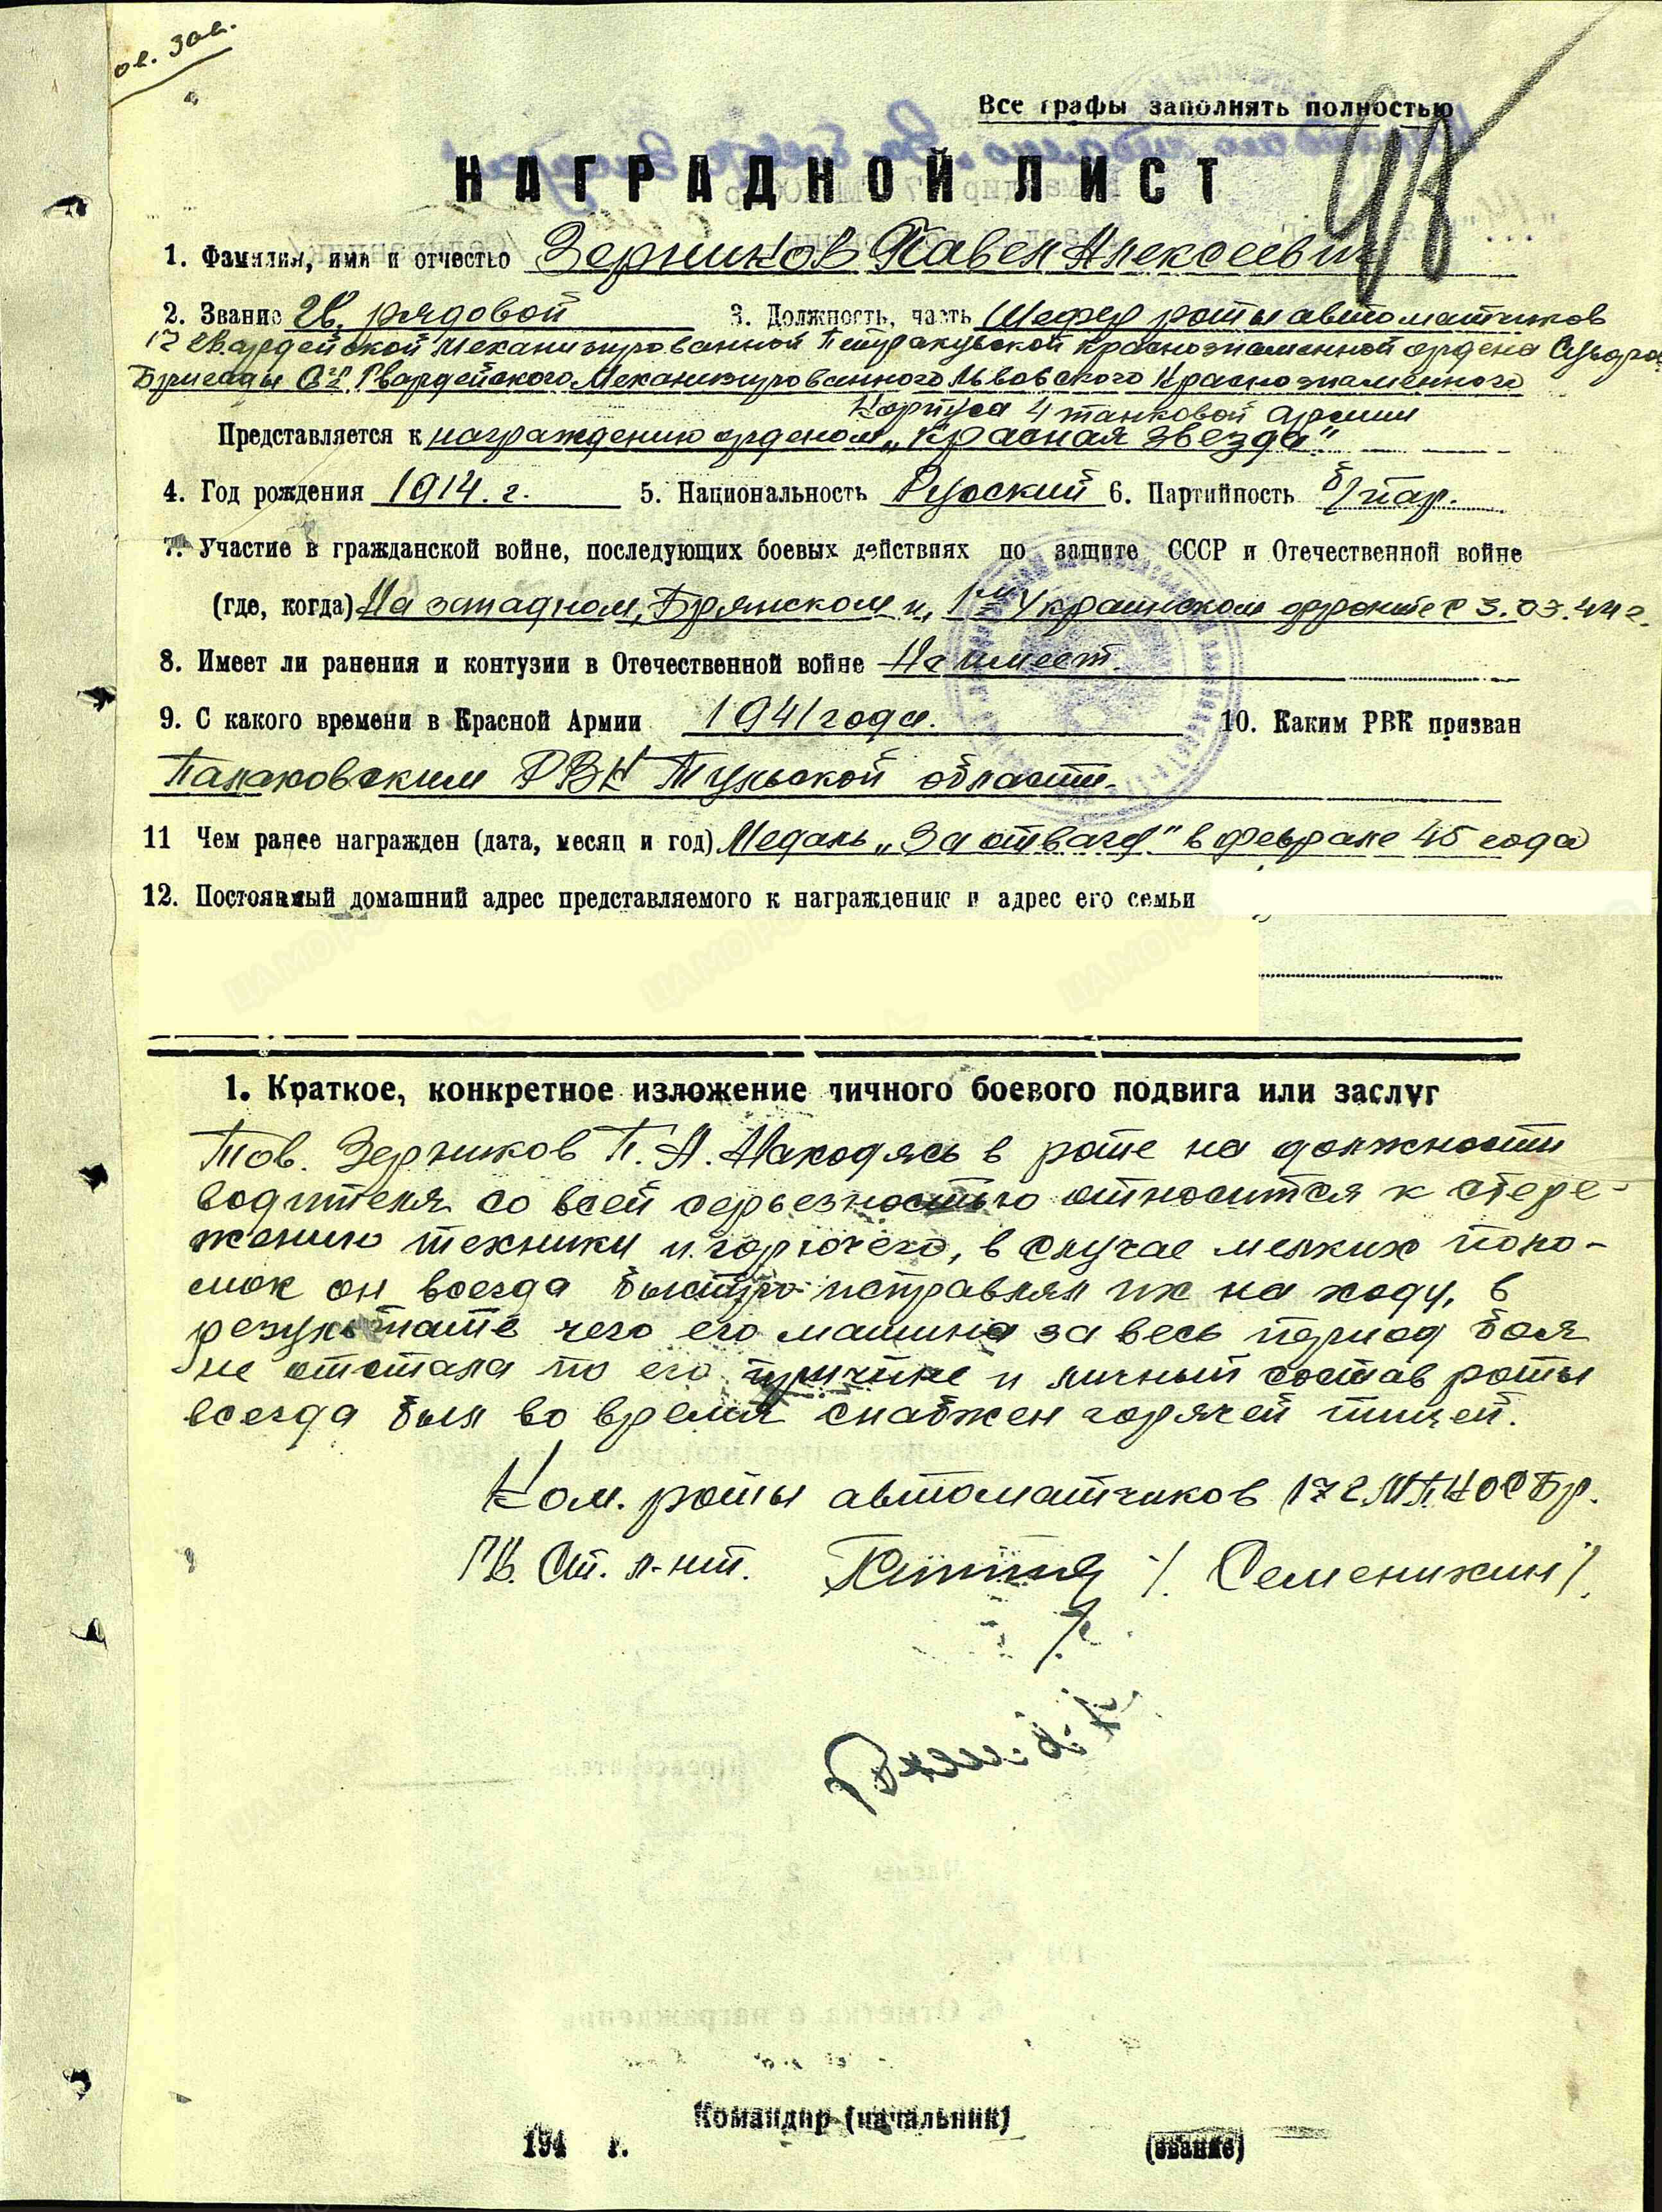 Все графы заполнять полностью
НАГРАДНОЙ ЛИСТ
1. Фамилия, имя и отчество Зерников Павел Алексеевич
2. Звание Гв. рядовой 3. Должность, часть Шофер роты автоматчиков
17 Гвардейской Механизированной Петракувской краснознаменной ордена Суворова
Бригады 6го Гвардейского Механизированного Львовского Краснознаменного
Корпуса 4 танковой армии
Представляется к награждению орденом „Красная звезда"
4. Год рождения 1914. г. 5. Национальность Русский 6. Партийность б/пар.
7. Участие в гражданской войне, последующих боевых действиях по защите СССР и Отечественной войне
(где, когда) На западном, Брянском и, 1м Украинском фронте с 3.03.44 г.
8. Имеет ли ранения и контузии в Отечественной войне Не имеет.
9. С какого времени в Красной Армии 1941 года. 10. Каким РВК призван
РВК Тульской области.
11 Чем ранее награжден (дата, месяц и год) Медаль „За отвагу" в феврале 45 года
12. Постоянный домашний адрес представляемого к награждению и адрес его семьи
1. Краткое, конкретное изложение личного боевого подвига или заслуг
Тов. Зерников П. А. Находясь в роте на должности
водителя со всей серьезностью относится к сбере-
жению техники и горючего, в случае мелких поло-
мок он всегда быстро исправлял их на ходу, в
результате чего его машина за весь период боя
не отстала по его причине и личный состав роты
всегда был во время снабжен горячей пищей.
Ком. роты автоматчиков
Гв. Ст. л-нт. /. Семенихин /.
Командир (начальник)
194 г.
(звание)